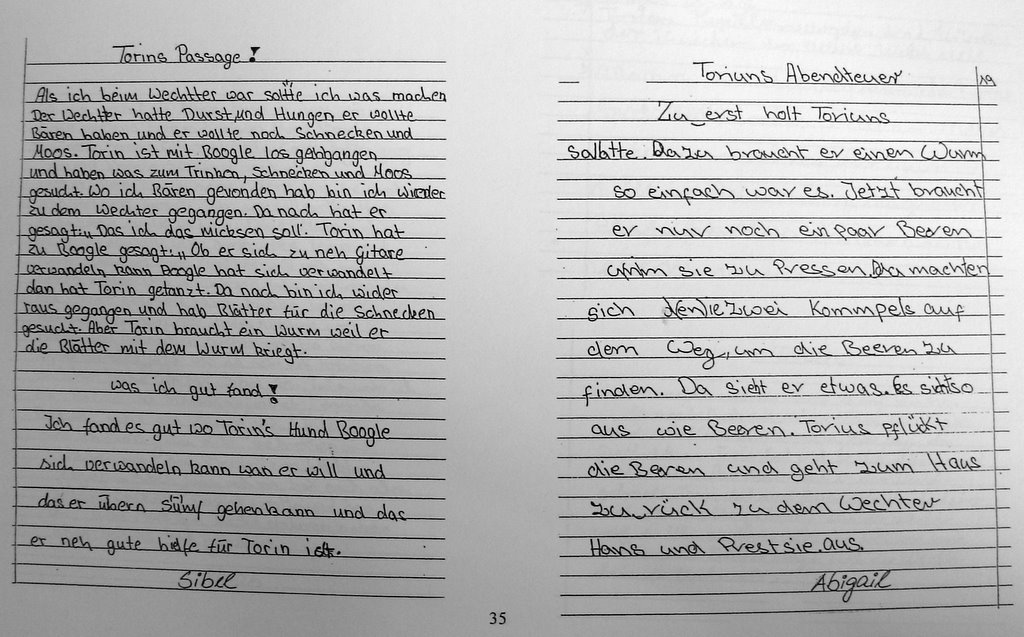 Torins Passage!
Als ich beim Wechtter war sollte ich was machen
Der Wechtter hatte Durst und Hungen er wollte
Bären haben und er wollte noch Schnecken und
Moos. Torin ist mit Boogle los gehgangen
und haben was zum Trinken, Schnecken und Moos
gesucht. Wo ich Bären gevonden hab bin ich wieder
zu dem Wechter gegangen. Da nach hat er
gesagt: „Das ich das micksen soll". Torin hat
zu Boogle gesagt: „Ob er sich zu neh Gitare
verwandeln kann Boogle hat sich verwandelt
dan hat Torin getanzt. Da nach bin ich wider
raus gegangen und hab Blätter für die Schnecken
gesucht. Aber Torin braucht ein Wurm weil er
die Blätter mit dem Wurm kriegt.
was ich gut fand!
Ich fand es gut wo Torin's Hund Boogle
sich verwandeln kann wan er will und
das er übern Sümf gehen kann und das
er neh gute hielfe für Torin ist.
Sibel
35
Toriuns Abendteuer
19
Zu erst holt Toriuns
salatte. Dazu braucht er einen Wurm
so einfach war es. Jetzt braucht
er nur noch ein paar Beeren
um sie zu Pressen. Da machten
sich die zwei Kommpels auf
dem Weg, um die Beeren zu
finden. Da sieht er etwas. Es sieht so
aus wie Beeren. Torius pflückt
die Beeren und geht zum Haus
zu rück zu dem Wechter
Hans und Prest sie aus.
Abigail